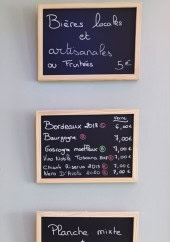 Bières locales
et
artisanales
ou Fruitées 5€
Verre
Bordeaux 2018 6,00€
Bourgogne 7,00€
Gascogne moelleux 7,00€
Vino Nobile Toscana 7,00€
Chianti Riserva 2015 7,00€
Nero D'Avola 2020 7,00€
Planche mixte